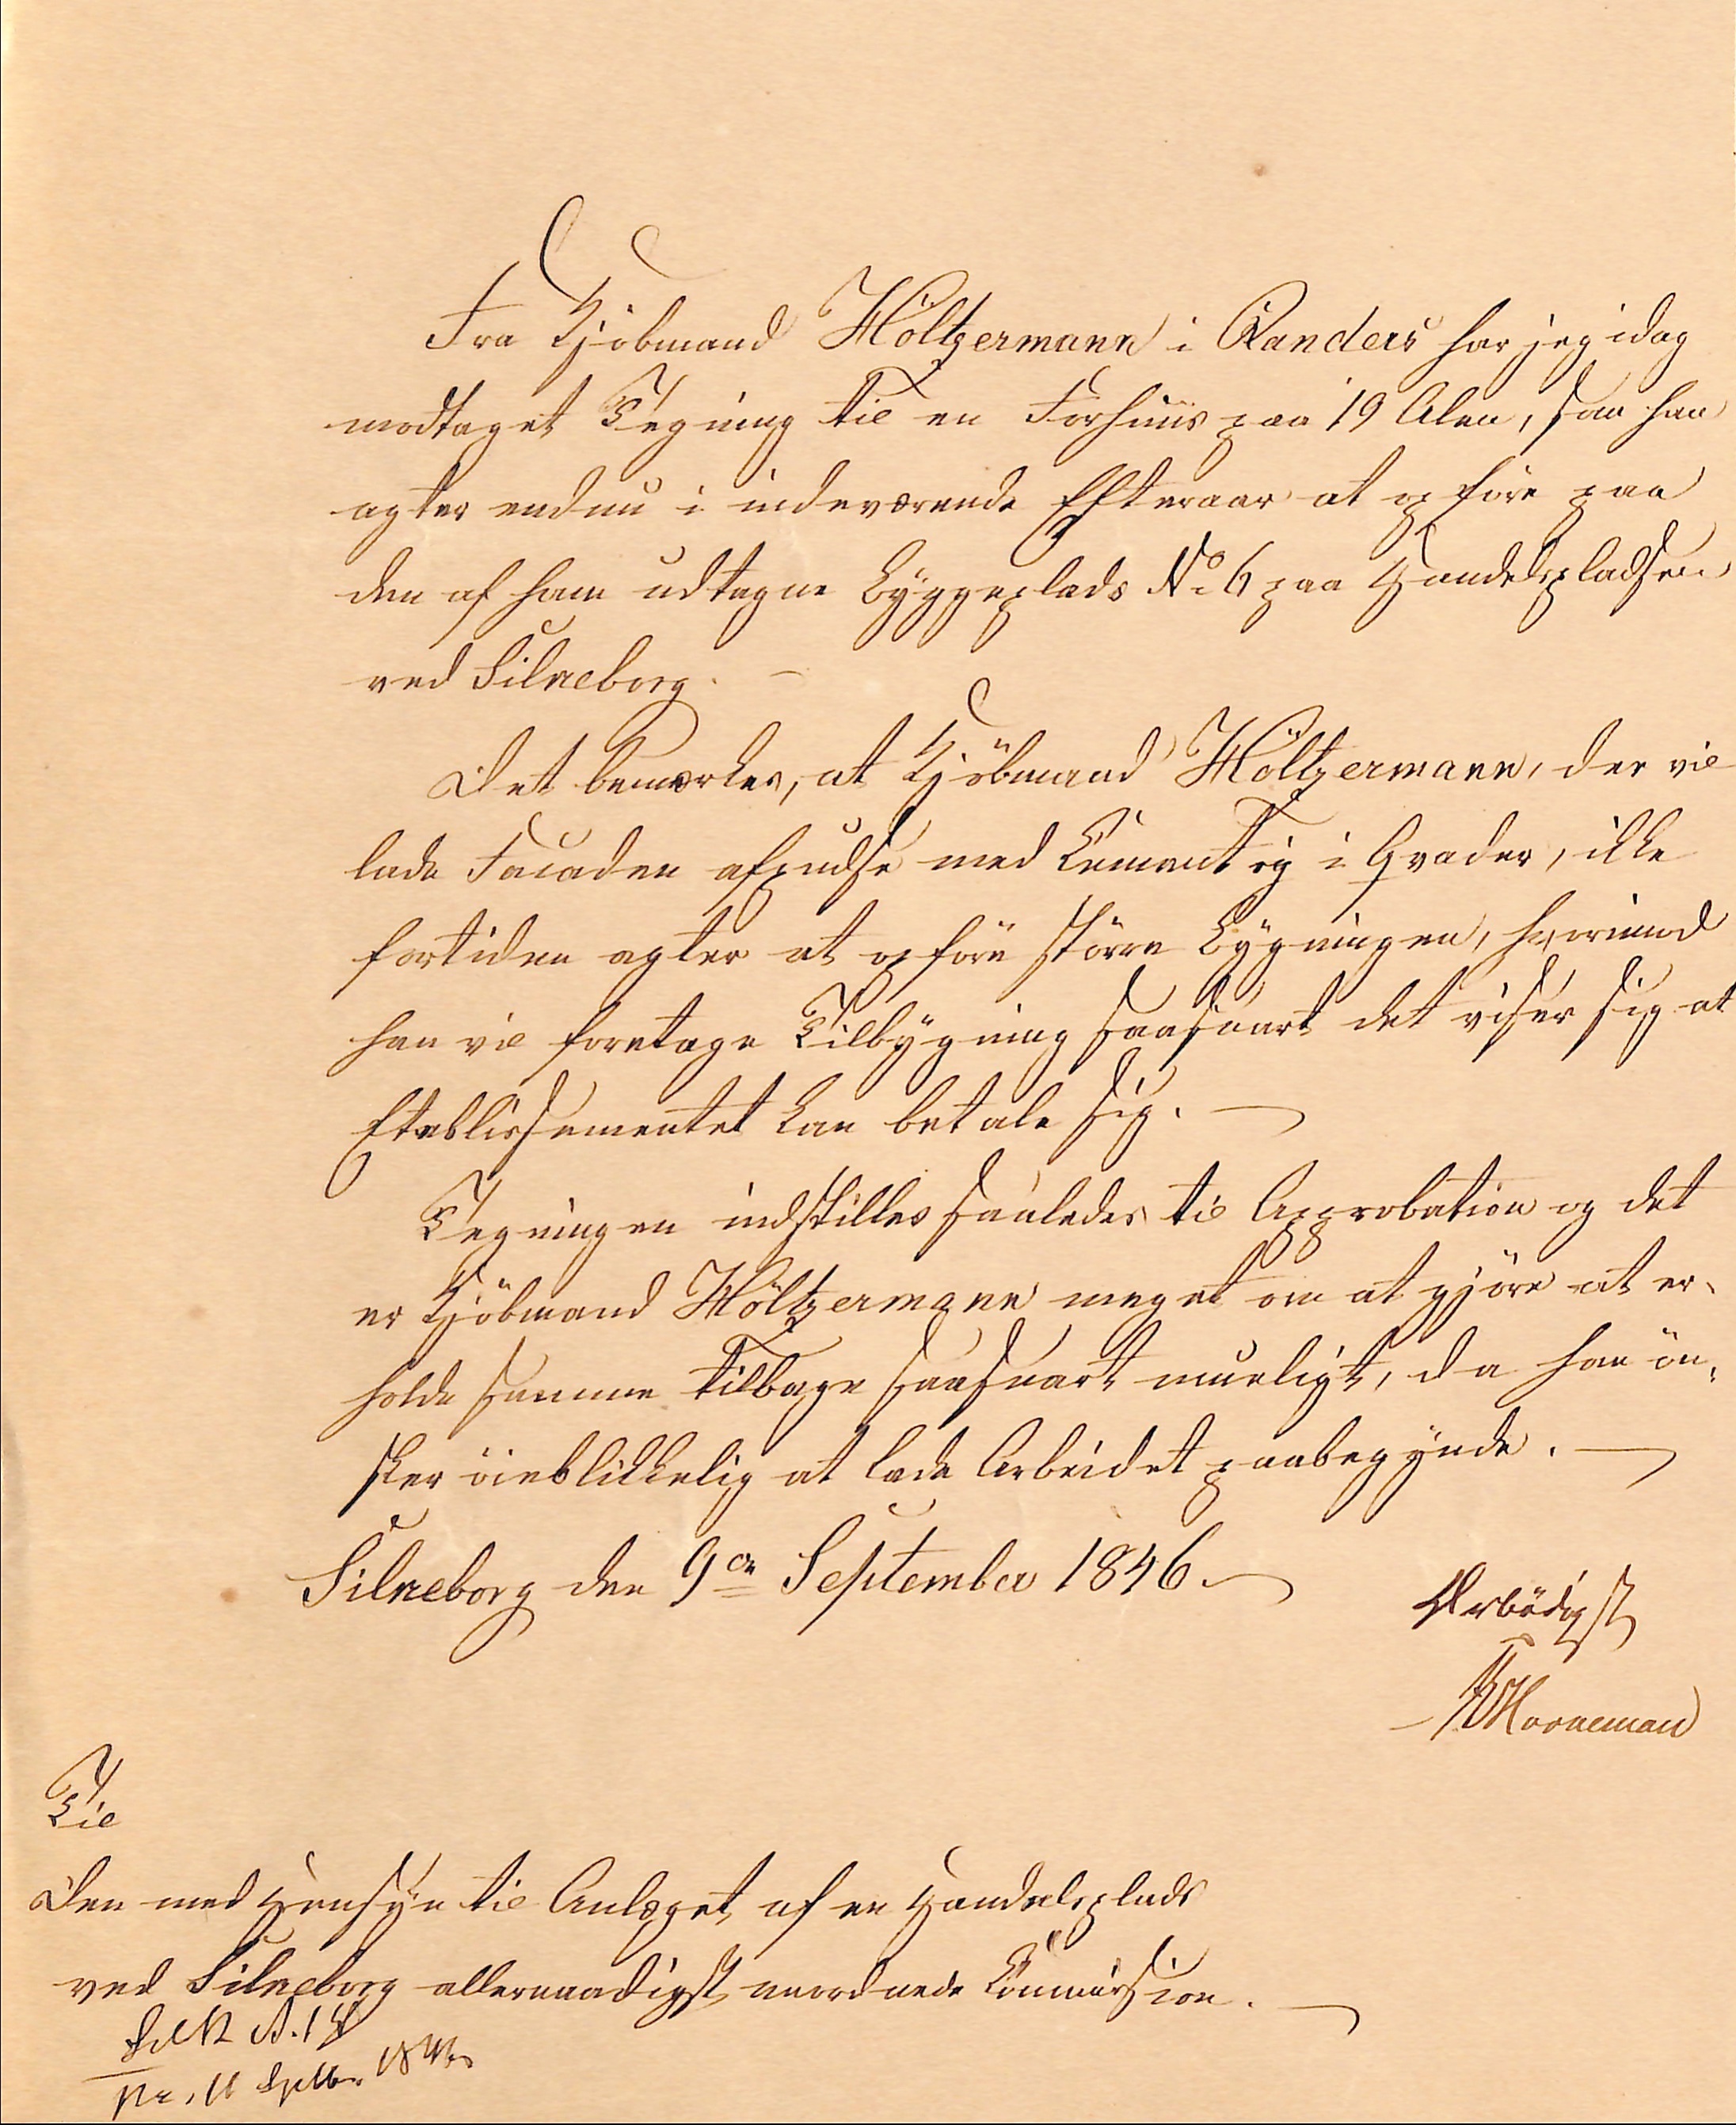 Fra Kjöbmand Höltzermann i Randers har jeg idag
modtaget Tegning til en Forhuus paa 19 Alen, som han
agter endnu i indeværende Efteraar at opföre paa
den af ham udtagne Byggeplads No 6 paa Handelspladsen
ved Silkeborg. —
Det bemærkes, at Kjöbmand Höltzermann, der vil
lade Facaden afpudse med Cement og i Qvader, ikke
fortiden agter at opföre större Bygningen, hvorimod
han vil foretage Tilbygning saasnart det viser sig at
Etablissementet kan betale sig. —
Tegningen indstilles saaledes til Approbation og det
er Kjöbmand Höltzermann meget om at gjöre at er-
holde samme tilbage saasnart mueligt, da han ön-
sker öieblikkelig at lade Arbeidet paabegynde. —
Silkeborg den 9de September 1846. —
Ærbödigst
Hooneman
Til
Den med Hensyn til Anlæget af en Handelsplads
ved Silkeborg allernaadigst anordnede Commission. —
Silk A. 14
Pr. 11 Septbr. 1846